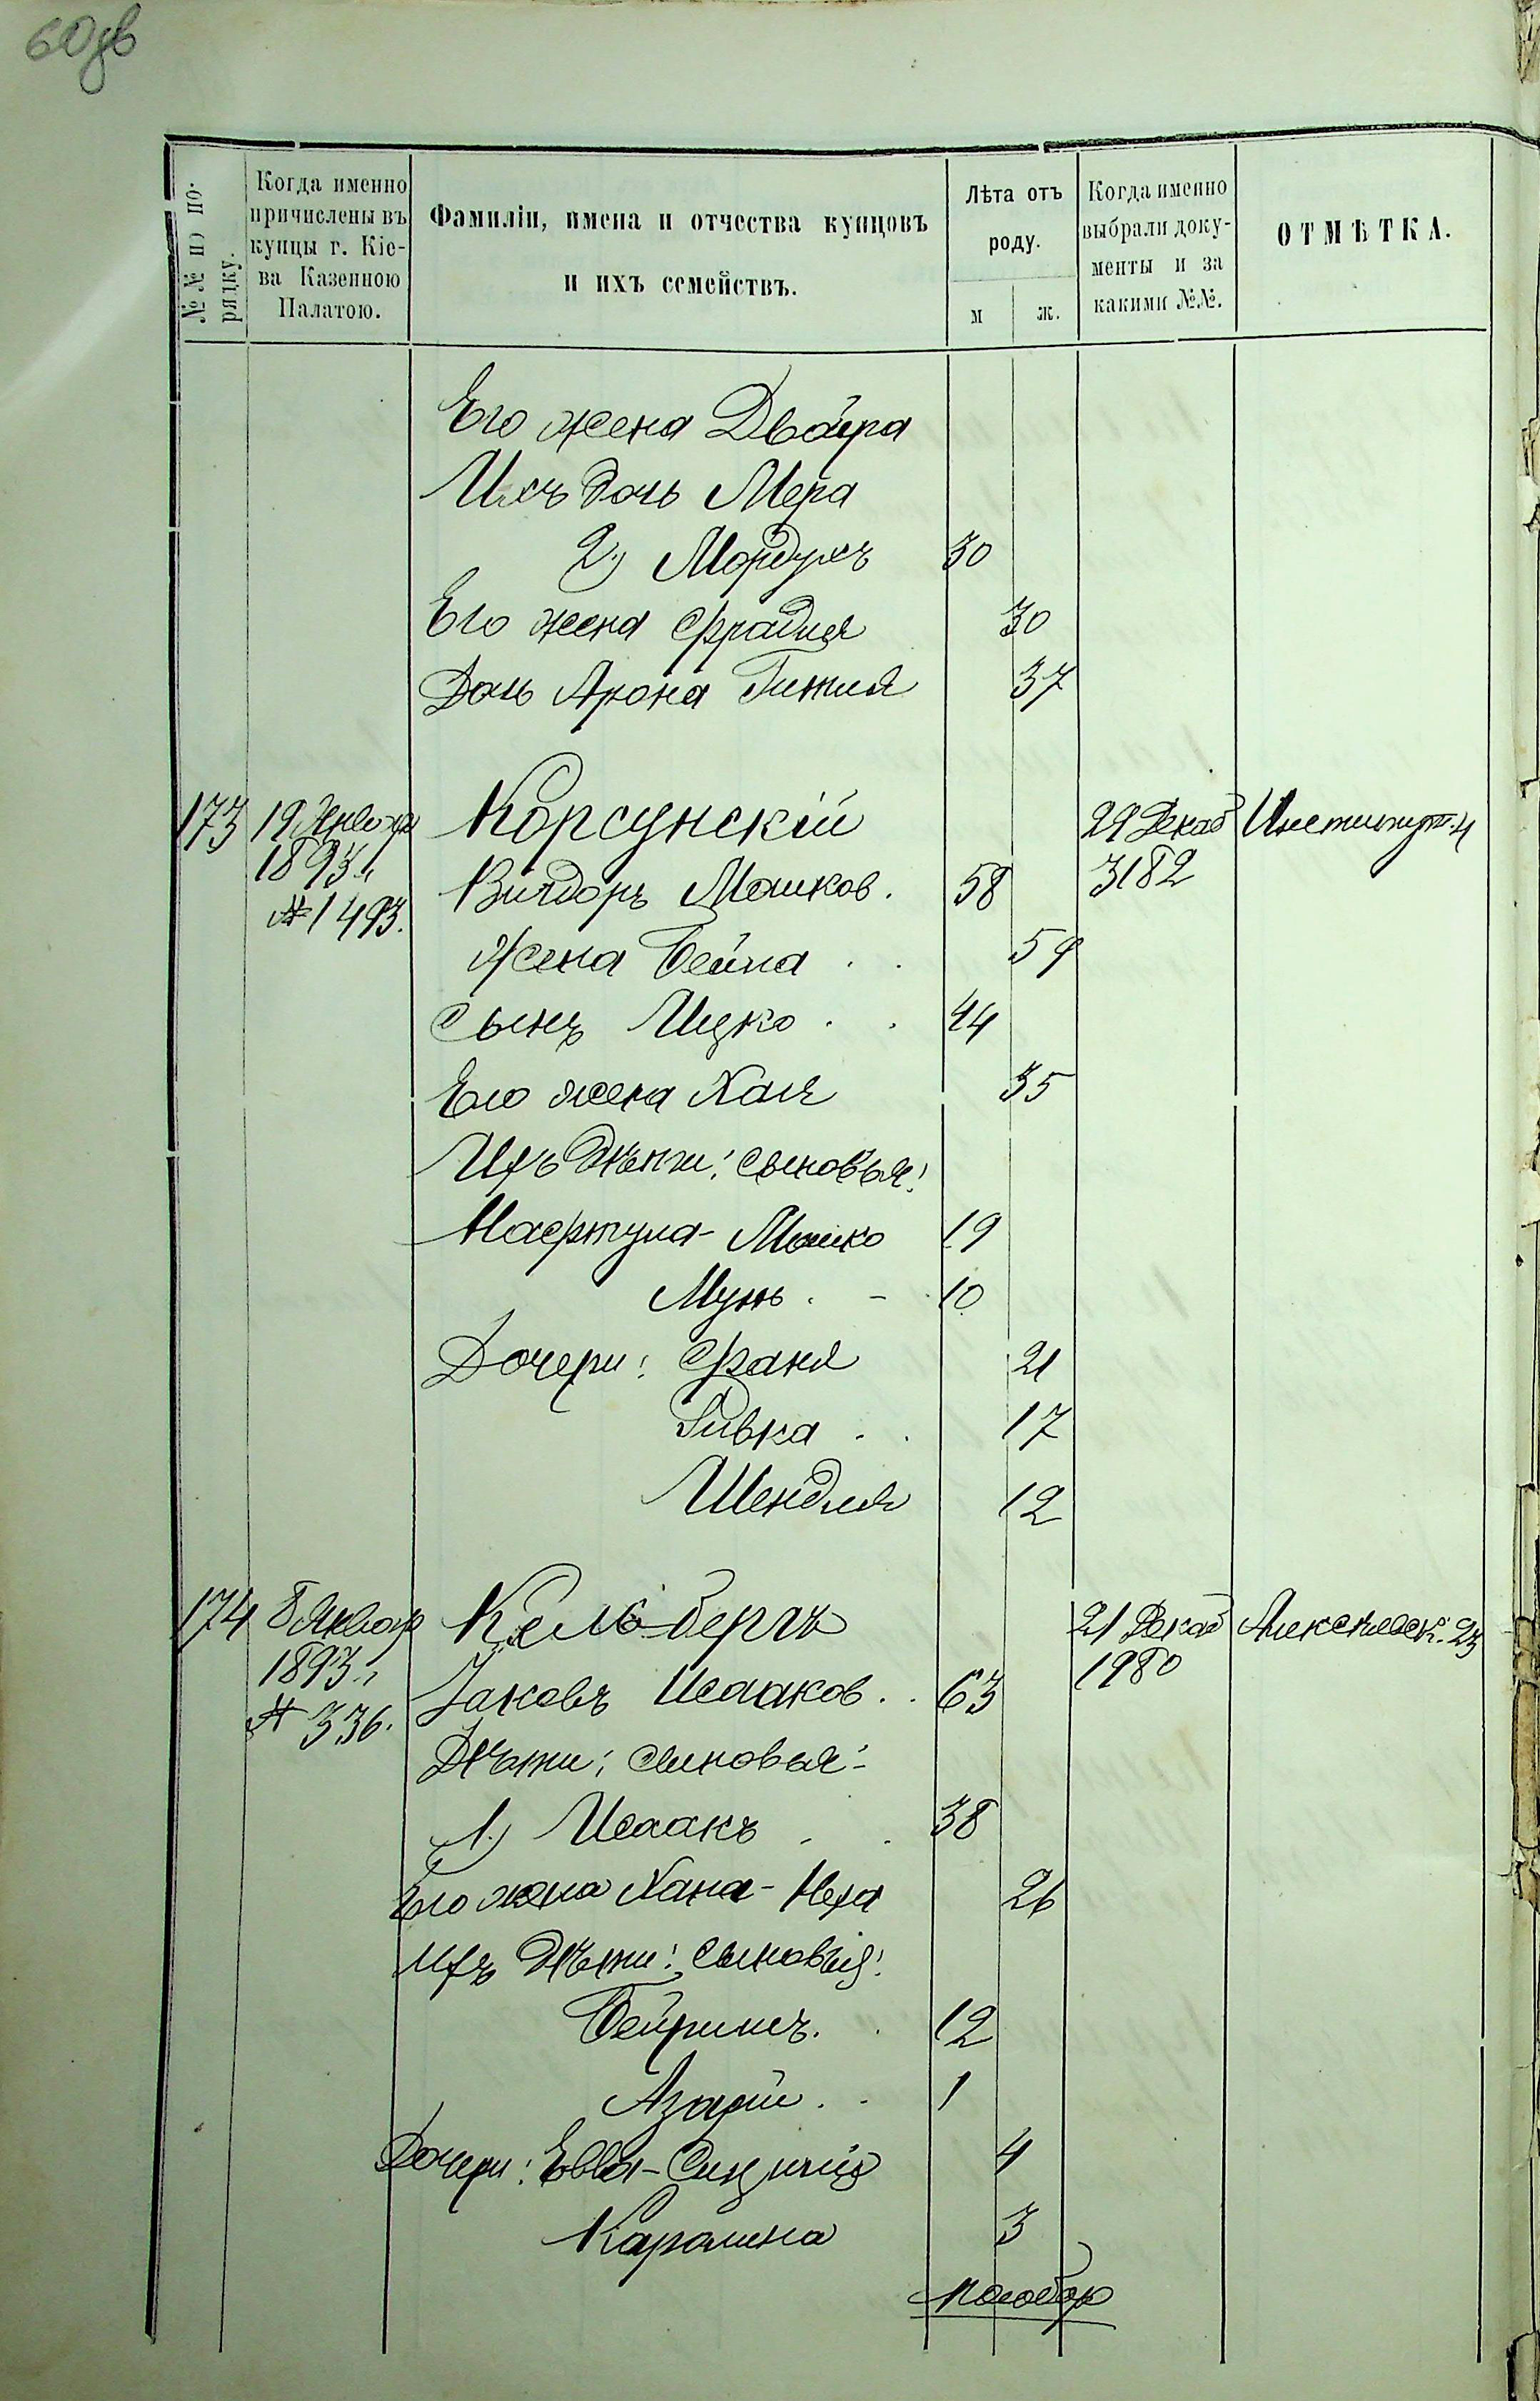 60 зв
№№ по по-
рядку.
Когда именно
причислены въ
купцы г. Кіе-
ва Казенною
Палатою.
Фамиліи, имена и отчества купцовъ
и ихъ семействъ.
Лѣта отъ
роду.
м ж.
Когда именно
выбрали доку-
менты и за
какими №№.
ОТМѢТКА.
Его жена Двойра
Ихъ дочь Мера
2.) Мордухъ 30
Его жена Фрадня 30
Дочь Арона Гитля 37
173 19 Января Корсунскій 29 Декаб Институт. 4
1893 г. 3182
№ 1493. Вигдоръ Мошков. 58
Жена Бейла . . 59
Сынъ Ицко . . 44
Его жена Хая 35
Ихъ дѣти: сыновья:
Нафтула-Мошко 19
Мунь . - 10
Дочери: Фаня 21
Ривка . . 17
Шендля 12
174 8 Январ Кельбергъ 21 Декаб Алексѣевск. 23
1893 г. 1980
№ 336. Іаковъ Исааков. . 63
Дѣти: сыновья:
1.) Исаакъ . . 38
Его жена Хана-Неха 26
Ихъ дѣти: сыновья:
Бейришъ. . 12
Азарій . . 1
Дочери: Евва- 4
Каролина 3